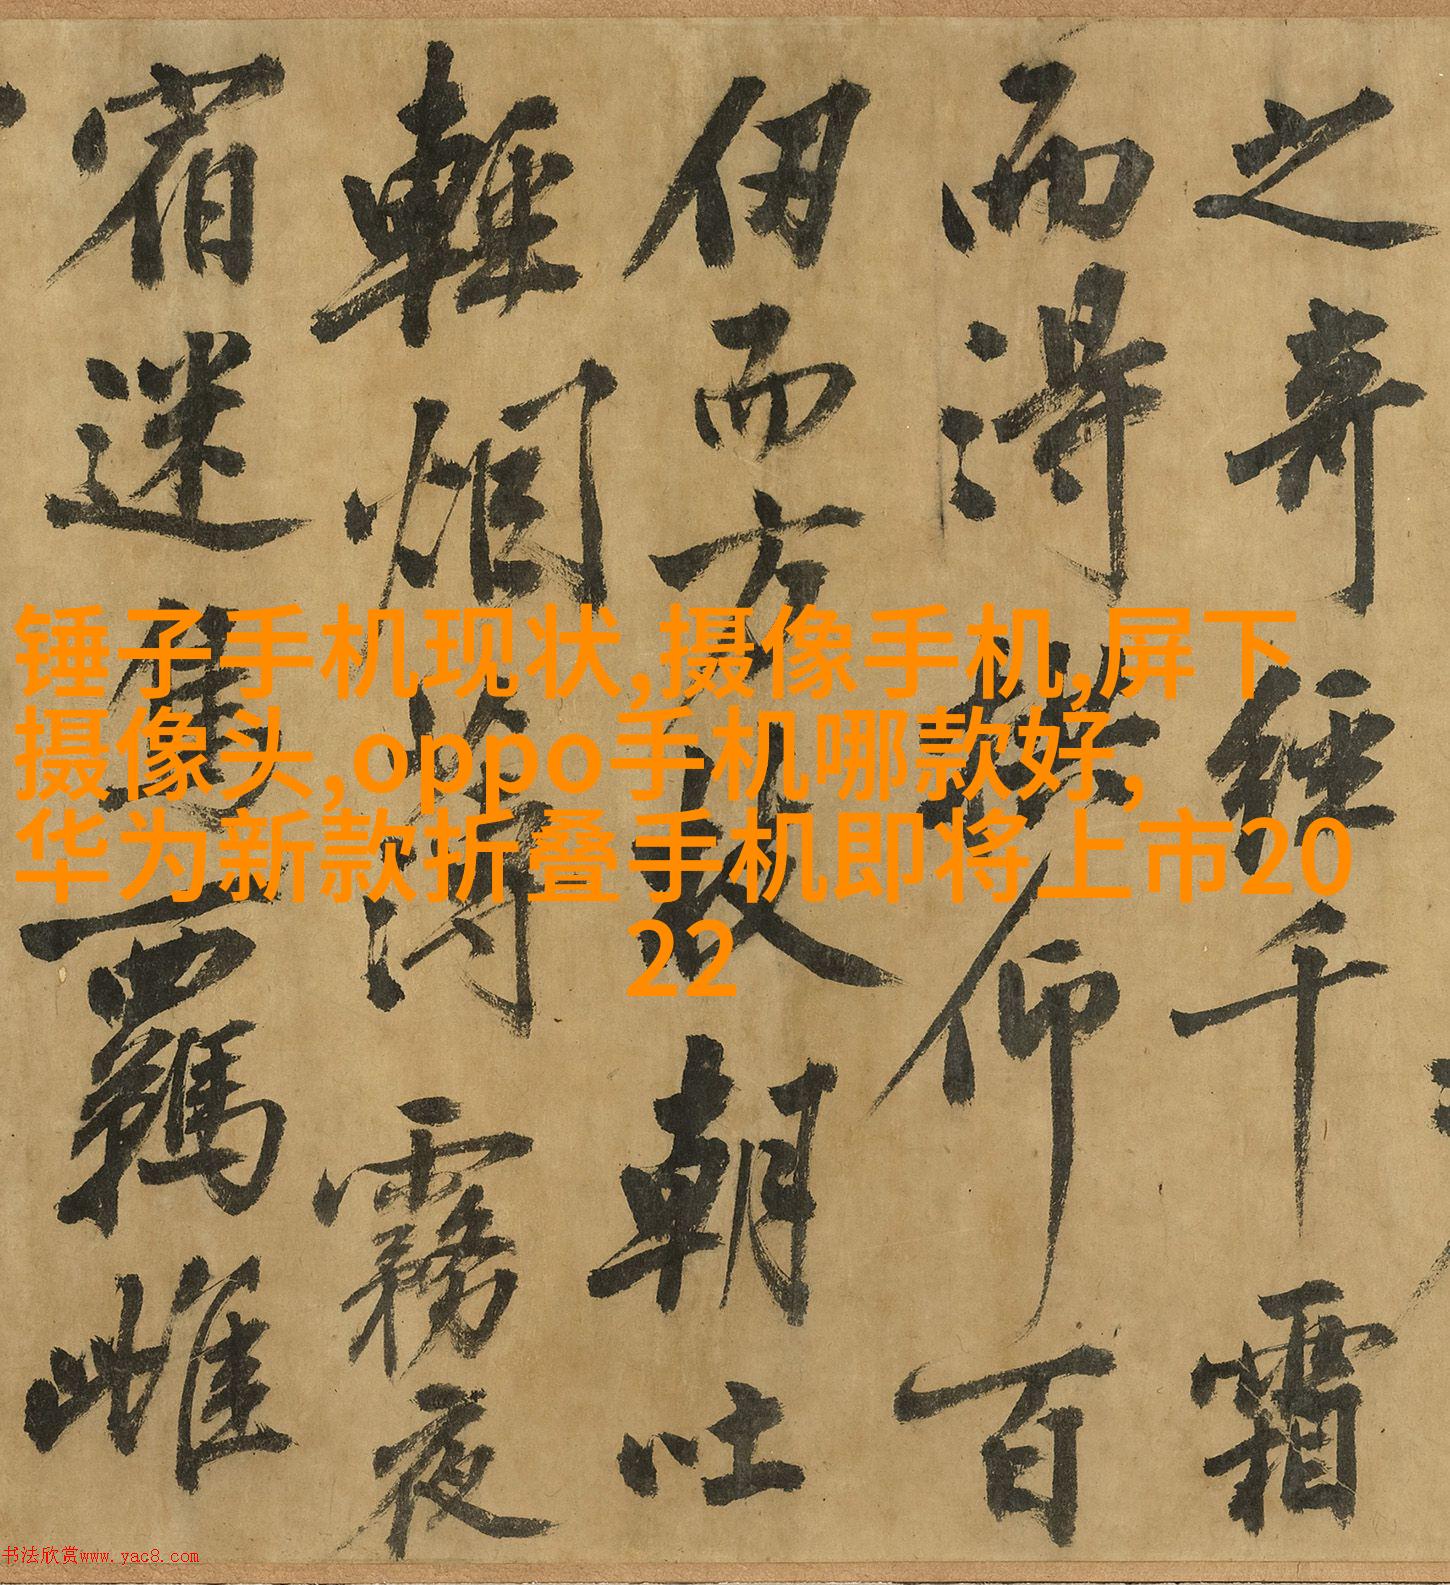 之奇經千霜
而得拱仰百
仞而方朝吐
輕烟薄霧夜
宿迷羈雌
锤子手机现状,摄像手机,屏下
摄像头,oppo手机哪款好,
华为新款折叠手机即将上市20
22
书法欣赏www.yac8.com